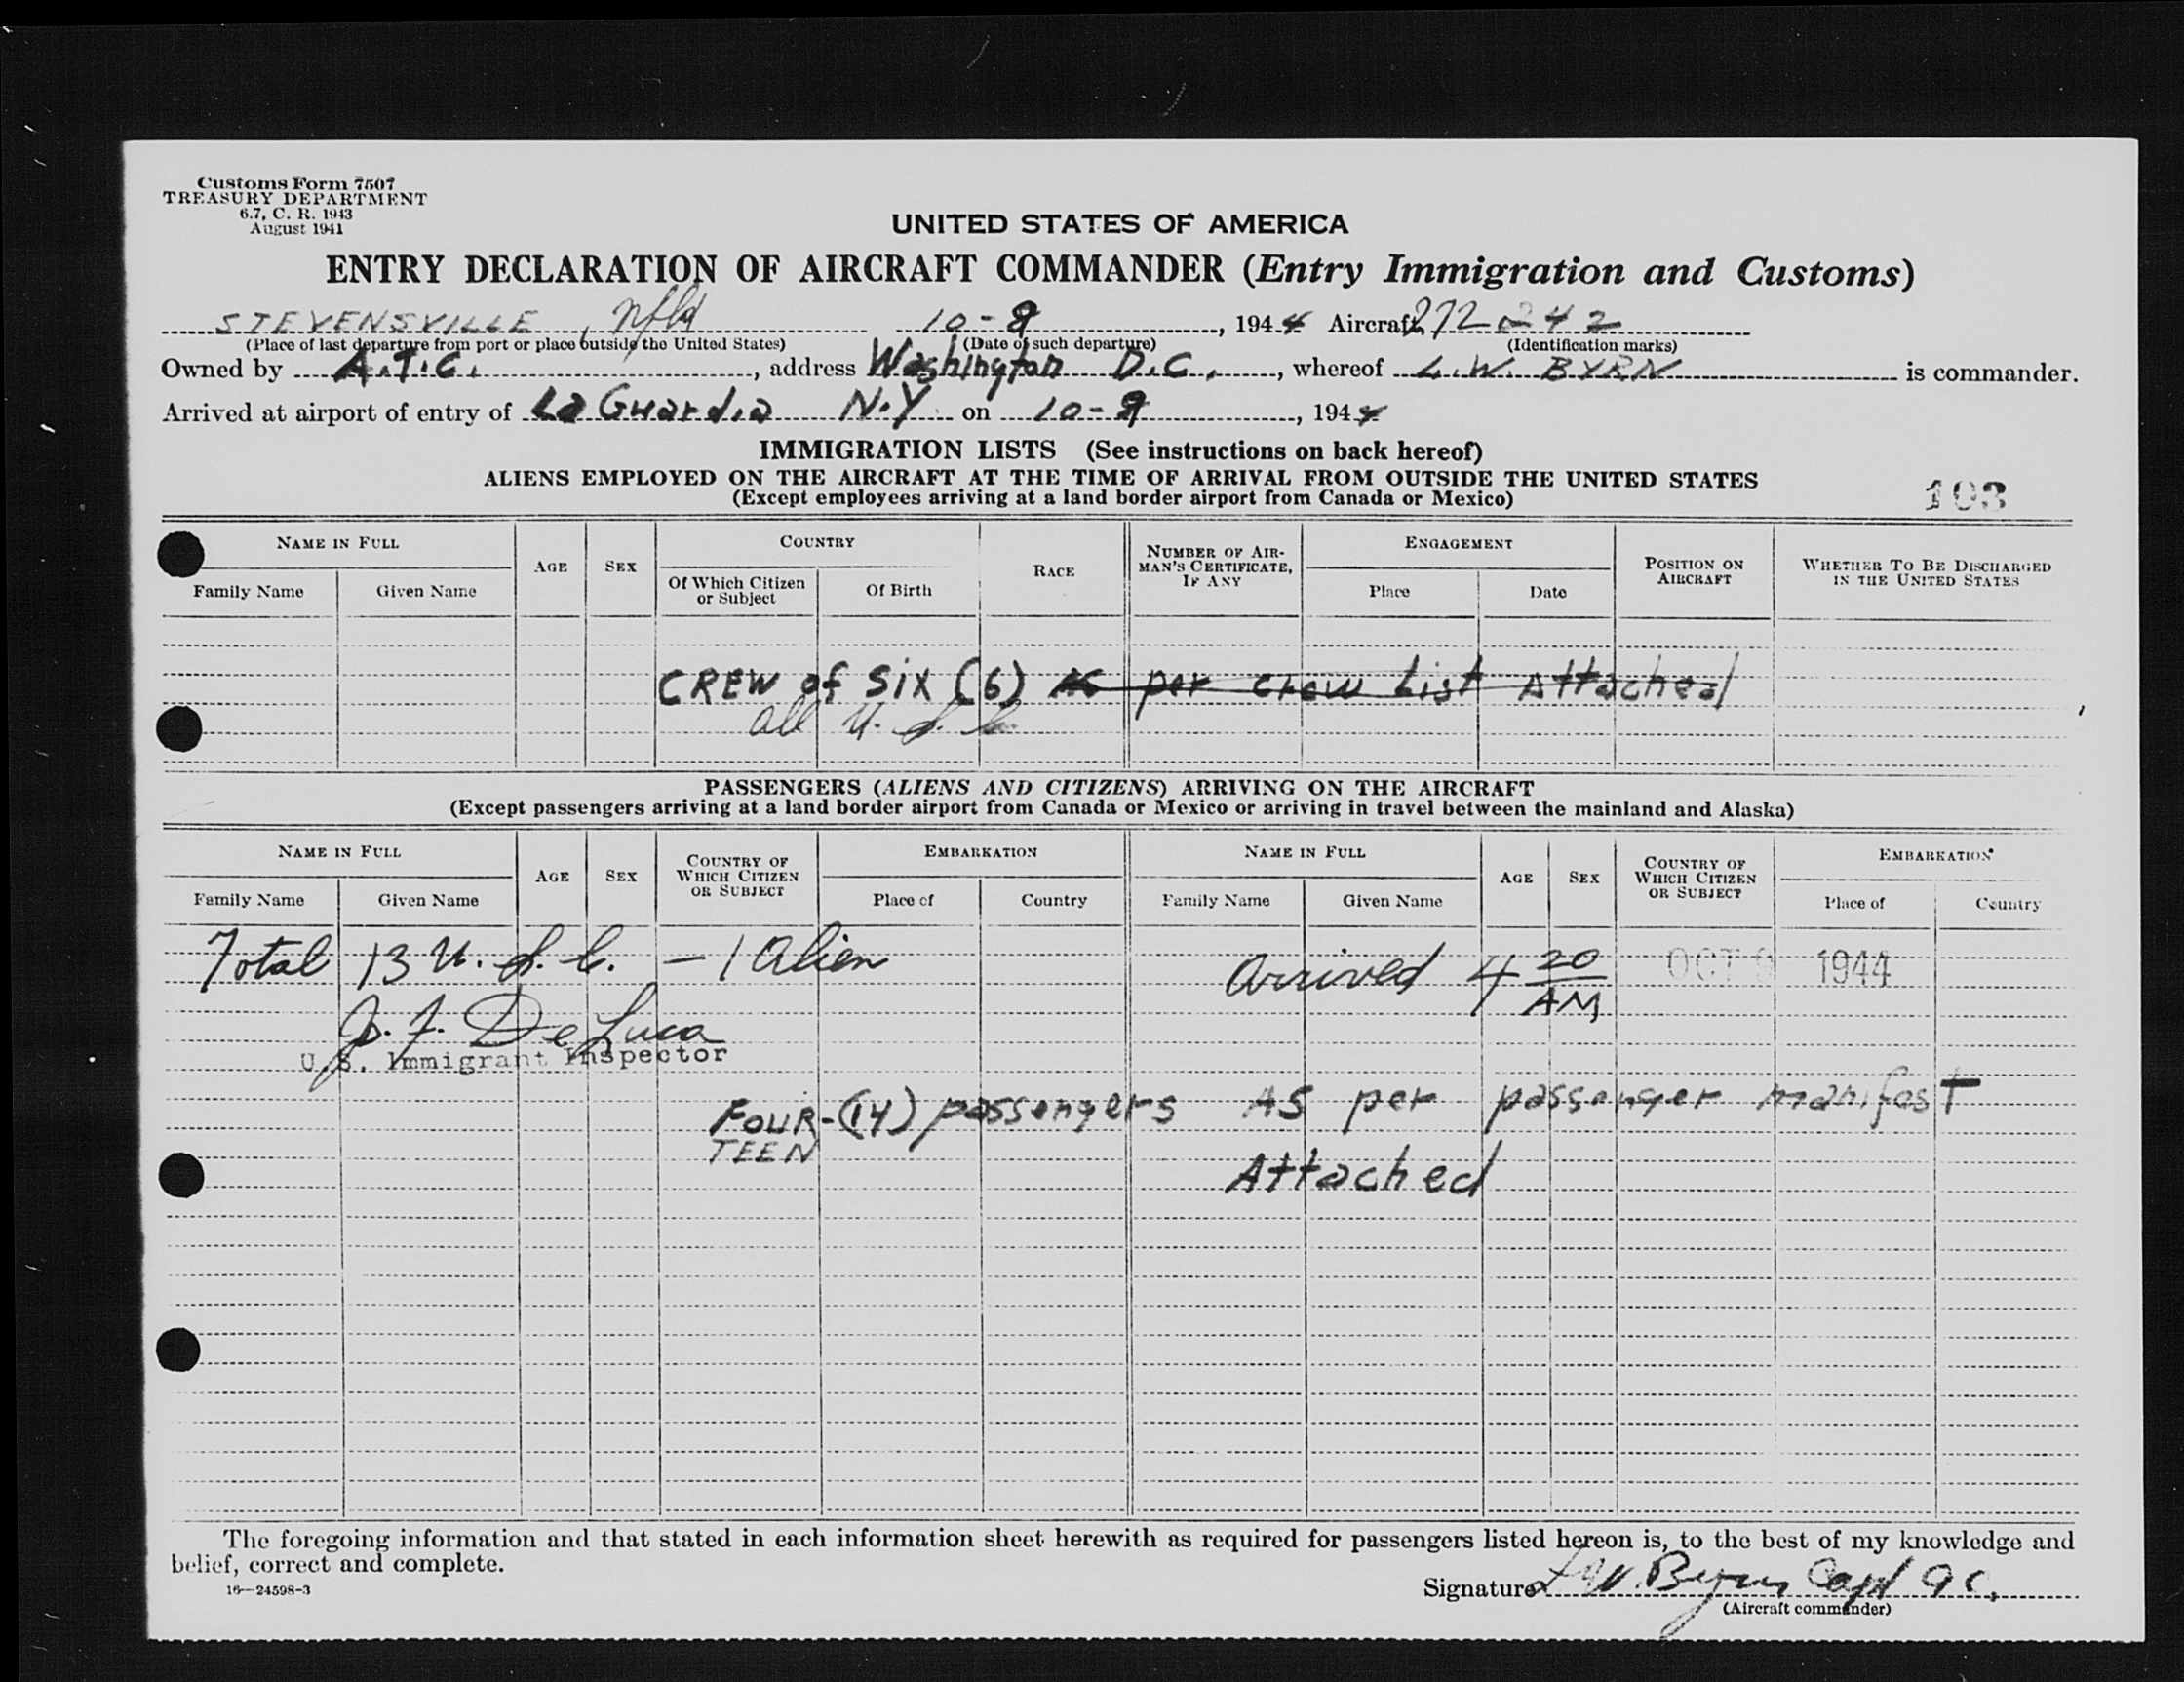 Customs Form 7507
TREASURY DEPARTMENT
6.7, C. R. 1943
August 1941
UNITED STATES OF AMERICA
ENTRY DECLARATION OF AIRCRAFT COMMANDER (Entry Immigration and Customs)
STEVENSVILLE, Nfld 10-8, 1944 Aircraft 272242
(Place of last departure from port or place outside the United States) (Date of such departure) (Identification marks)
Owned by A.T.C., address Washington D.C., whereof L.W. BYRN is commander.
Arrived at airport of entry of La Guardia N.Y. on 10-9, 1944
IMMIGRATION LISTS (See instructions on back hereof)
ALIENS EMPLOYED ON THE AIRCRAFT AT THE TIME OF ARRIVAL FROM OUTSIDE THE UNITED STATES
(Except employees arriving at a land border airport from Canada or Mexico)
103
NAME IN FULL AGE SEX COUNTRY RACE NUMBER OF AIRMAN'S CERTIFICATE, IF ANY ENGAGEMENT POSITION ON AIRCRAFT WHETHER TO BE DISCHARGED IN THE UNITED STATES
Family Name Given Name Of Which Citizen or Subject Of Birth Place Date
CREW of Six (6) As per crew List Attached
all U.S.C.
PASSENGERS (ALIENS AND CITIZENS) ARRIVING ON THE AIRCRAFT
(Except passengers arriving at a land border airport from Canada or Mexico or arriving in travel between the mainland and Alaska)
NAME IN FULL AGE SEX COUNTRY OF WHICH CITIZEN OR SUBJECT EMBARKATION NAME IN FULL AGE SEX COUNTRY OF WHICH CITIZEN OR SUBJECT EMBARKATION
Family Name Given Name Place of Country Family Name Given Name Place of Country
Total 13 U.S.C. - 1 Alien Arrived 4 20 AM OCT 9 1944
J. De Luca
U.S. Immigrant Inspector
FOUR-(14) passengers AS per passenger manifest
TEEN
Attached
The foregoing information and that stated in each information sheet herewith as required for passengers listed hereon is, to the best of my knowledge and
belief, correct and complete.
16—24598-3
Signature L.W. Byrn Capt A.C.
(Aircraft commander)